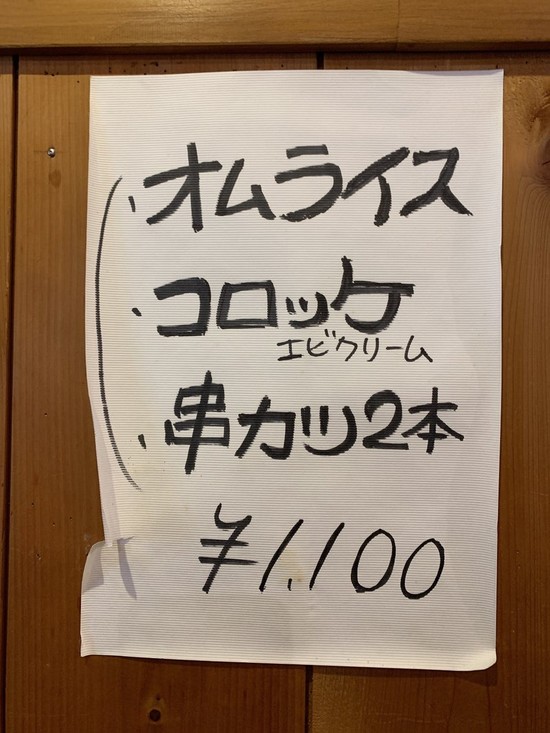 ・オムライス
・コロッケ
エビクリーム
・串カツ2本
¥1,100